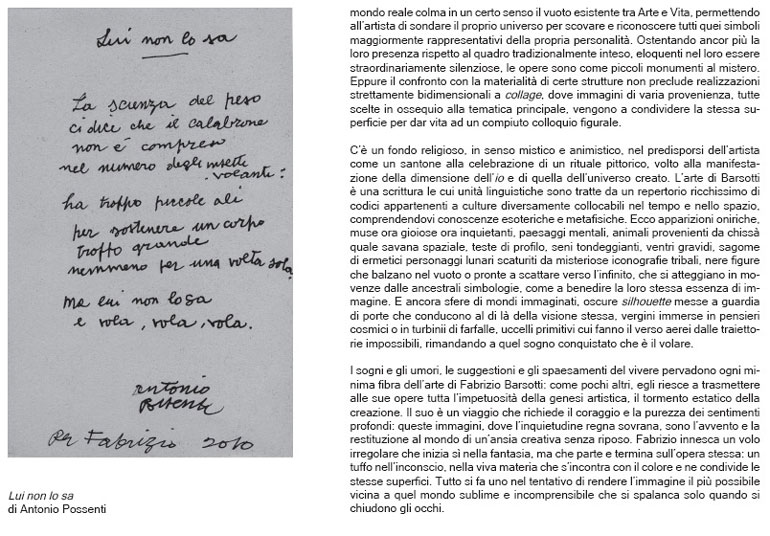 Lui non lo sa
La scienza del peso
ci dice che il calabrone
non é compreso
nel numero degli insetti
volanti:
ha troppo piccole ali
per sostenere un corpo
troppo grande
nemmeno per una volta sola.
Ma lui non lo sa
e vola, vola, vola.
Antonio
Possenti
Per Fabrizio 2010
Lui non lo sa
di Antonio Possenti
mondo reale colma in un certo senso il vuoto esistente tra Arte e Vita, permettendo
all'artista di sondare il proprio universo per scovare e riconoscere tutti quei simboli
maggiormente rappresentativi della propria personalità. Ostentando ancor più la
loro presenza rispetto al quadro tradizionalmente inteso, eloquenti nel loro essere
straordinariamente silenziose, le opere sono come piccoli monumenti al mistero.
Eppure il confronto con la materialità di certe strutture non preclude realizzazioni
strettamente bidimensionali a collage, dove immagini di varia provenienza, tutte
scelte in ossequio alla tematica principale, vengono a condividere la stessa su-
perficie per dar vita ad un compiuto colloquio figurale.
C'è un fondo religioso, in senso mistico e animistico, nel predisporsi dell'artista
come un santone alla celebrazione di un rituale pittorico, volto alla manifesta-
zione della dimensione dell'io e di quella dell'universo creato. L'arte di Barsotti
è una scrittura le cui unità linguistiche sono tratte da un repertorio ricchissimo di
codici appartenenti a culture diversamente collocabili nel tempo e nello spazio,
comprendendovi conoscenze esoteriche e metafisiche. Ecco apparizioni oniriche,
muse ora gioiose ora inquietanti, paesaggi mentali, animali provenienti da chissà
quale savana spaziale, teste di profilo, seni tondeggianti, ventri gravidi, sagome
di ermetici personaggi lunari scaturiti da misteriose iconografie tribali, nere figure
che balzano nel vuoto o pronte a scattare verso l'infinito, che si atteggiano in mo-
venze dalle ancestrali simbologie, come a benedire la loro stessa essenza di im-
magine. E ancora sfere di mondi immaginati, oscure silhouette messe a guardia
di porte che conducono al di là della visione stessa, vergini immerse in pensieri
cosmici o in turbinii di farfalle, uccelli primitivi cui fanno il verso aerei dalle traietto-
rie impossibili, rimandando a quel sogno conquistato che è il volare.
I sogni e gli umori, le suggestioni e gli spaesamenti del vivere pervadono ogni mi-
nima fibra dell'arte di Fabrizio Barsotti: come pochi altri, egli riesce a trasmettere
alle sue opere tutta l'impetuosità della genesi artistica, il tormento estatico della
creazione. Il suo è un viaggio che richiede il coraggio e la purezza dei sentimenti
profondi: queste immagini, dove l'inquietudine regna sovrana, sono l'avvento e la
restituzione al mondo di un'ansia creativa senza riposo. Fabrizio innesca un volo
irregolare che inizia sì nella fantasia, ma che parte e termina sull'opera stessa: un
tuffo nell'inconscio, nella viva materia che s'incontra con il colore e ne condivide le
stesse superfici. Tutto si fa uno nel tentativo di rendere l'immagine il più possibile
vicina a quel mondo sublime e incomprensibile che si spalanca solo quando si
chiudono gli occhi.